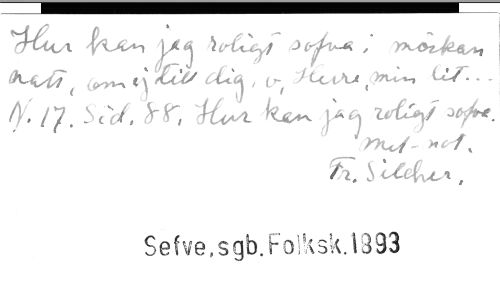 Hur kan jag roligt sofva i mörkan
natt, om ej till dig, o, Herre, min lit...
N. 17. Sid. 88. Hur kan jag roligt sofva.
met-not.
Fr. Silcher.
Sefve, sgb. Folksk. 1893